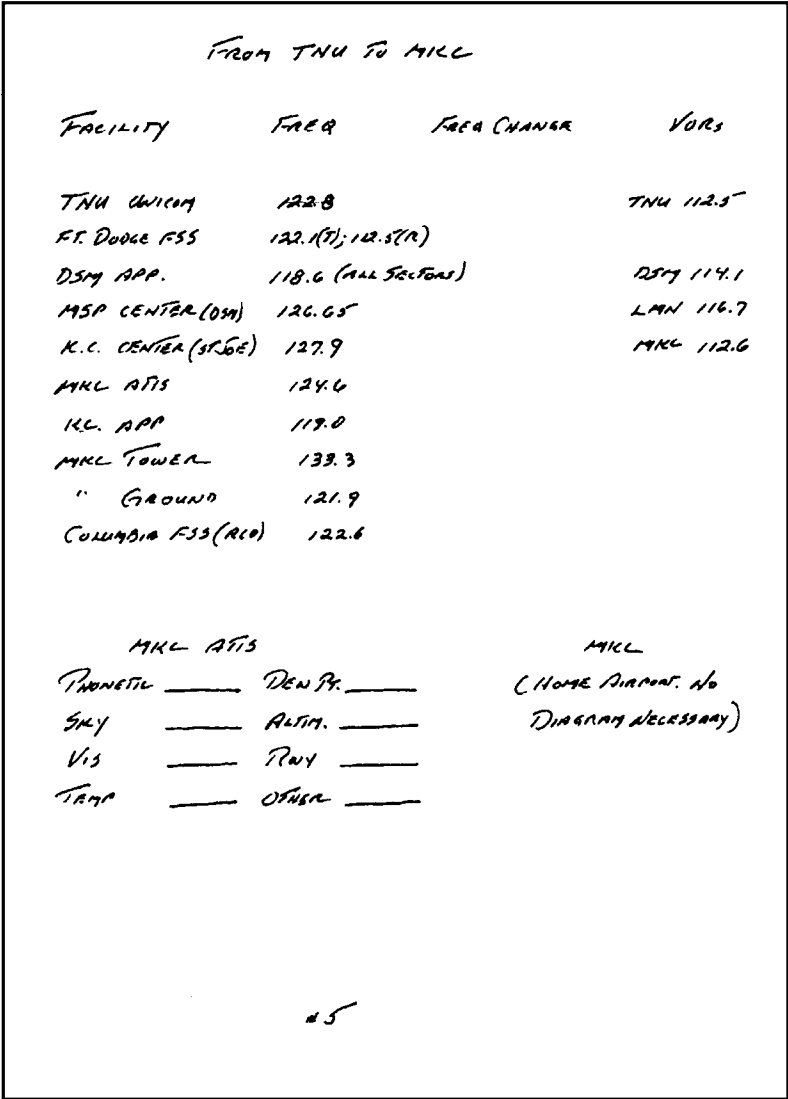 FROM TNU TO MKC
FACILITY FREQ FREQ CHANGE VORS
TNU UNICOM 122.8 TNU 112.5
FT. DODGE FSS 122.1(T); 112.5(R)
DSM APP. 118.6 (ALL SECTORS) DSM 114.1
MSP CENTER (DSM) 126.65 LMN 116.7
K.C. CENTER (ST. JOE) 127.9 MKC 112.6
MKC ATIS 124.6
K.C. APP 119.0
MKC TOWER 133.3
" GROUND 121.9
COLUMBIA FSS (RCO) 122.6
MKC ATIS MKC
PHONETIC DEW PT. (HOME AIRPORT. NO
SKY ALTIM. DIAGRAM NECESSARY)
VIS RWY
TEMP OTHER
#5